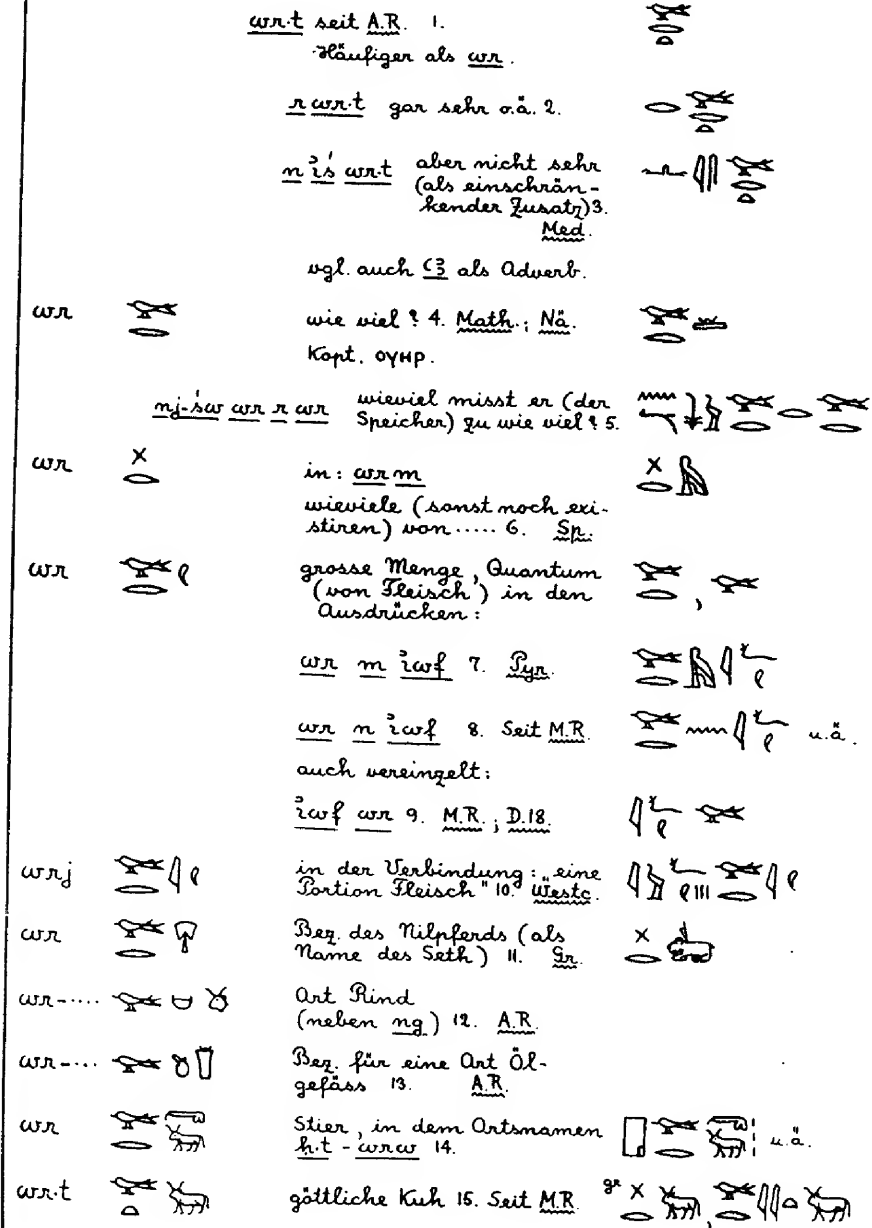 wr.t seit A.R. 1. 𓅨𓂋𓏏
Häufiger als wr.
r wr.t gar sehr o.ä. 2. 𓂋𓅨𓂋𓏏
n ỉś wr.t aber nicht sehr 𓂜𓇋𓋴𓅨𓂋𓏏
(als einschrän-
kender Zusatz) 3.
Med.
vgl. auch ꜥꜣ als Adverb.
wr 𓅨𓂋 wie viel? 4. Math.; Nä. 𓅨𓂋𓏛
Kopt. ⲟⲩⲏⲣ.
nj-św wr r wr wieviel misst er (der
Speicher) zu wie viel? 5. 𓅨𓂋𓂋𓅨𓂋
wr 𓏴𓂋 in: wr m 𓏴𓂋𓅓
wieviele (sonst noch exi-
stiren) von ..... 6. Sp.
wr 𓅨𓂋𓄹 grosse Menge, Quantum 𓅨𓂋, 𓅨
(von Fleisch) in den
Ausdrücken:
wr m ỉwf 7. Pyr. 𓅨𓂋𓅓𓇋𓆑𓄹
wr n ỉwf 8. Seit M.R. 𓅨𓂋𓈖𓇋𓆑𓄹 u.ä.
auch vereinzelt:
ỉwf wr 9. M.R.; D.18. 𓇋𓆑𓄹𓅨
wrj 𓅨𓂋𓇋𓄹 in der Verbindung: „eine
Portion Fleisch" 10. Westc. 𓇋𓅱𓆑𓄹𓏥𓅨𓂋𓇋𓄹
wr 𓅨𓂋𓄛 Bez. des Nilpferds (als
Name des Seth) 11. Gr. 𓏴𓂋
wr-.... 𓅨 Art Rind
(neben ng) 12. A.R.
wr-... 𓅨 Bez. für eine Art Öl-
gefäss 13. A.R.
wr 𓅨𓂋𓃒 Stier, in dem Ortsnamen
ḥ.t-wrw 14. 𓉗𓅨𓂋𓃒 u.ä.
wr.t 𓅨𓏏𓃒 göttliche Kuh 15. Seit M.R. gr 𓏴𓂋𓃒, 𓅨𓂋𓇋𓇋𓏏𓃒